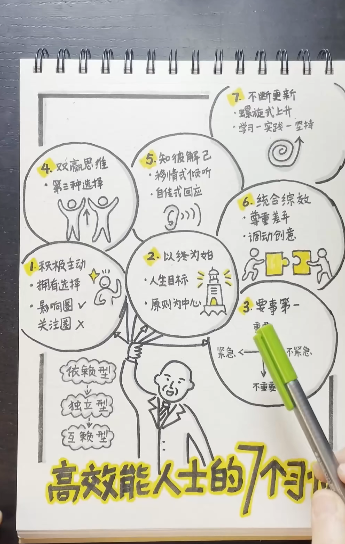 7. 不断更新
· 螺旋式上升
· 学习—实践—坚持
4. 双赢思维
· 第三种选择
5. 知彼解己
· 移情式倾听
· 自传式回应
6. 统合综效
· 尊重差异
· 调动创意
1. 积极主动
· 拥有选择
· 影响圈 ✓
关注圈 ✗
2. 以终为始
· 人生目标
· 原则为中心
3. 要事第一
紧急
不紧急
不重要
依赖型
独立型
互赖型
高效能人士的7个习